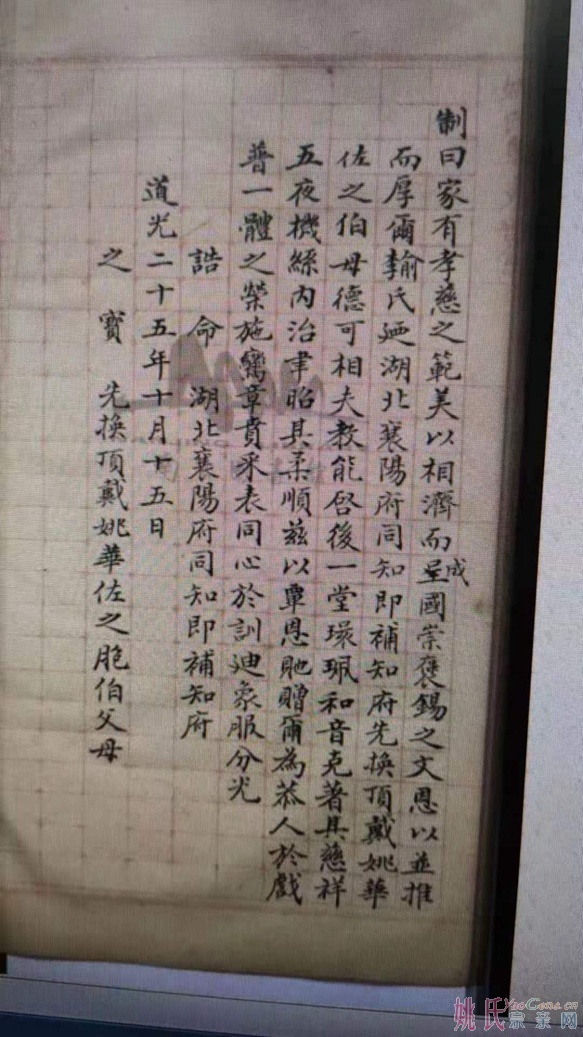 制曰家有孝慈之範美以相濟而呈成國崇褒錫之文恩以並推
而厚爾翰氏廼湖北襄陽府同知即補知府先換頂戴姚華
佐之伯母德可相夫教能啓後一堂環珮和音克著其慈祥
五夜機絲內治聿昭其柔順茲以覃恩貤贈爾為恭人於戲
普一體之榮施鸞章賁采表同心於訓迪象服分光
誥命 湖北襄陽府同知即補知府
道光二十五年十月十五日
之寶 先換頂戴姚華佐之胞伯父母
姚氏宗亲网
YaoGens.cn